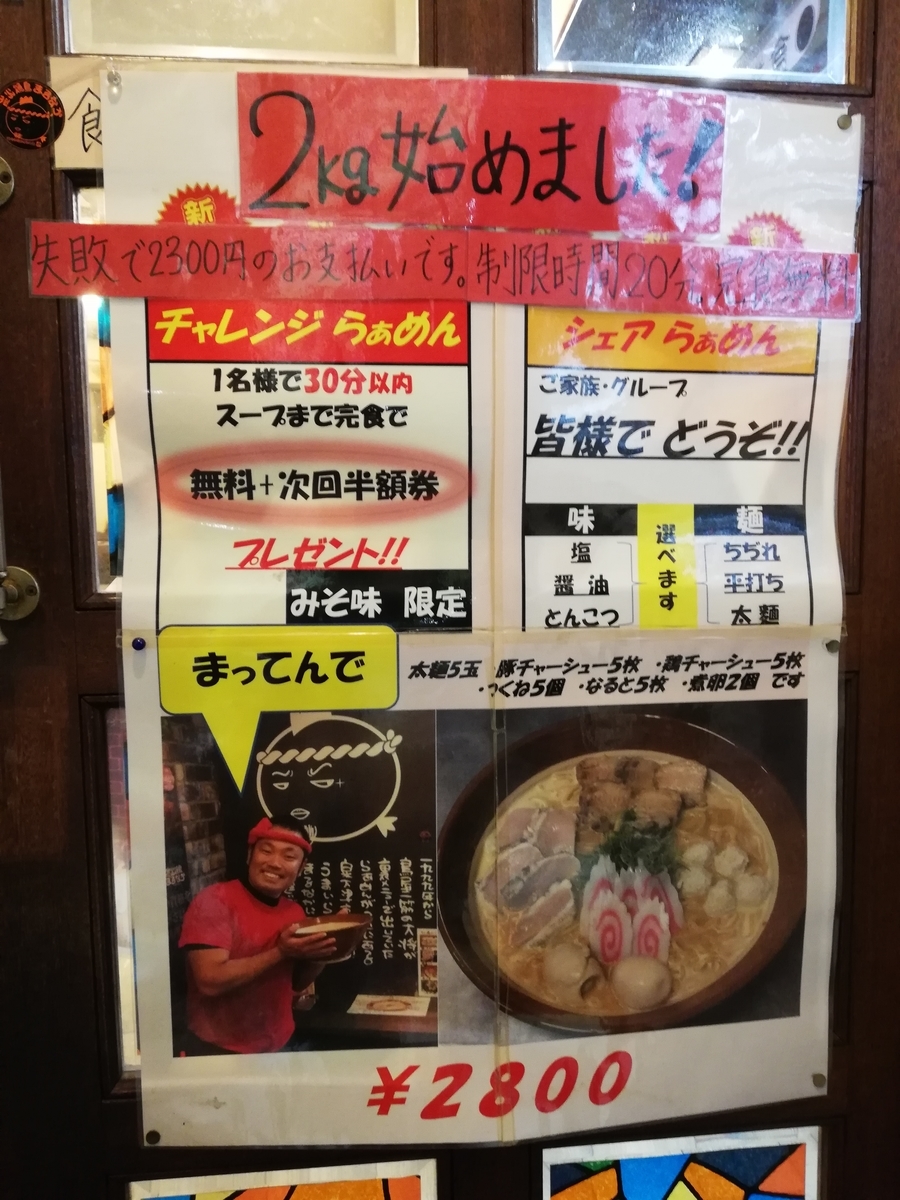 食
2kg始めました!
新
新
失敗で2300円のお支払いです。制限時間20分完食無料
チャレンジ らぁめん
1名様で30分以内
スープまで完食で
無料+次回半額券
プレゼント!!
みそ味 限定
シェア らぁめん
ご家族・グループ
皆様で どうぞ!!
味 選べます 麺
塩 ちぢれ
醤油 平打ち
とんこつ 太麺
まってんで
太麺5玉 ・豚チャーシュー5枚 ・鶏チャーシュー5枚
・つくね5個 ・なると5枚 ・煮卵2個 です
¥2800